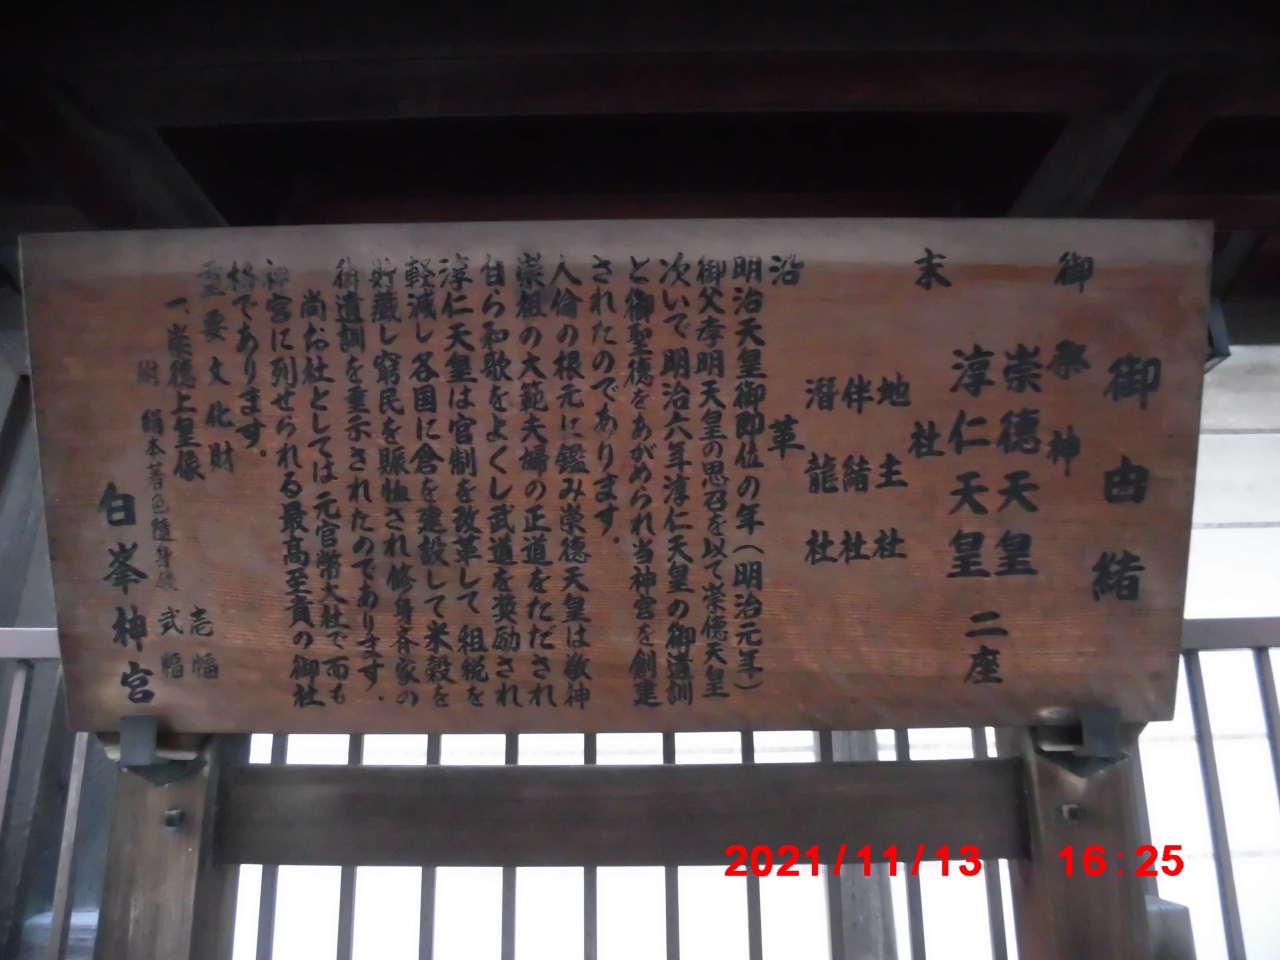 御由緒
御祭神
崇德天皇
淳仁天皇 二座
末社
地主社
伴緒社
潜龍社
沿革
明治天皇御即位の年(明治元年)
御父孝明天皇の思召を以て崇德天皇
次いで明治六年淳仁天皇の御遺訓
と御聖德をあがめられ当神宮を創建
されたのであります。
人倫の根元に鑑み崇德天皇は敬神
崇祖の大範夫婦の正道をただされ
自ら和歌をよくし武道を奨励され
淳仁天皇は官制を改革して租税を
軽減し各国に倉を建設して米穀を
貯蔵し窮民を賑恤され修身斉家の
御遺訓を垂示されたのであります.
尚お社としては元官幣大社で而も
神宮に列せられる最高至貴の御社
格であります。
重要文化財
一、崇德上皇像 壱幅
附 絹本著色随身像 弐幅
白峯神宮
2021/11/13 16:25